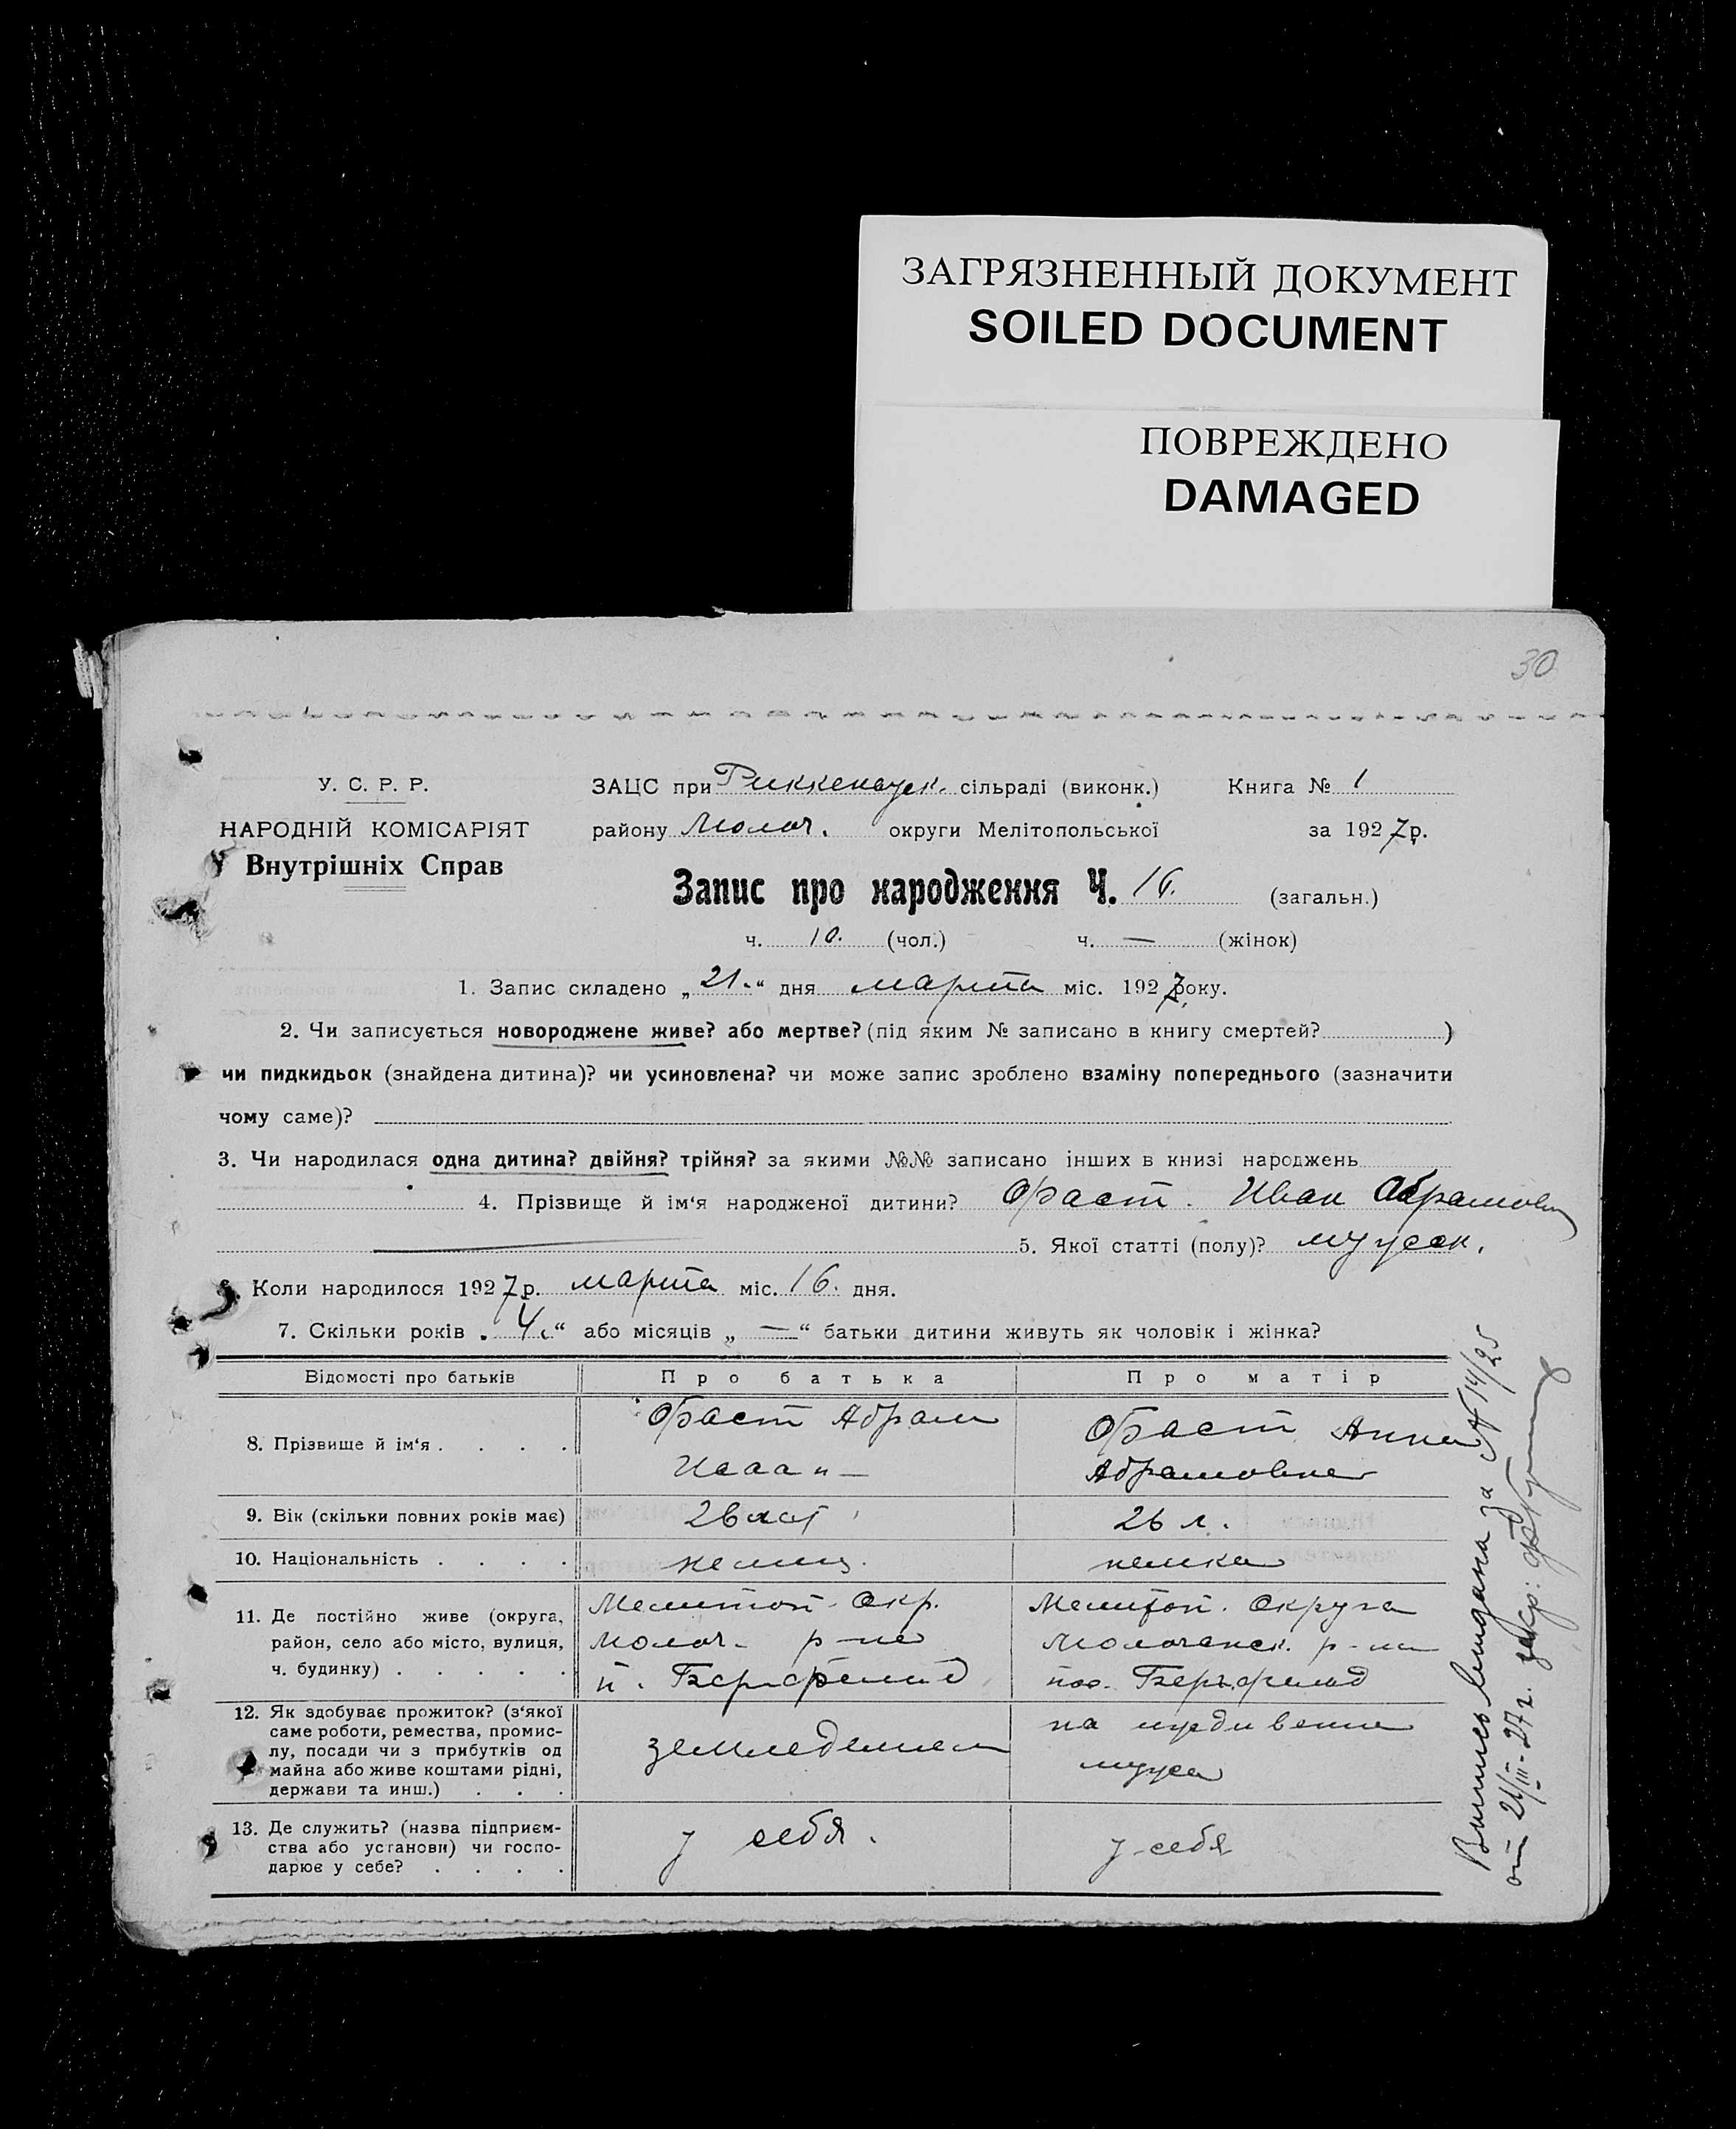 ЗАГРЯЗНЕННЫЙ ДОКУМЕНТ
SOILED DOCUMENT
ПОВРЕЖДЕНО
DAMAGED
30
У. С. Р. Р.
НАРОДНІЙ КОМІСАРІЯТ
Внутрішніх Справ
ЗАЦС при Риккенауск. сільраді (виконк.) Книга № 1
району Молоч. округи Мелітопольської за 1927 р.
Запис про народження Ч. 16. (загальн.)
ч. 10. (чол.) ч. — (жінок)
1. Запис складено „21.“ дня марта міс. 1927 року.
2. Чи записується новороджене живе? або мертве? (під яким № записано в книгу смертей? )
чи пидкидьок (знайдена дитина)? чи усиновлена? чи може запис зроблено взаміну попереднього (зазначити
чому саме)?
3. Чи народилася одна дитина? двійня? трійня? за якими №№ записано інших в книзі народжень
4. Прізвище й ім‘я народженої дитини? Фаст. Иван Абрамович
5. Якої статті (полу)? мужск.
Коли народилося 1927 р. марта міс. 16. дня.
7. Скільки років „4.“ або місяців „—“ батьки дитини живуть як чоловік і жінка?
Відомості про батьків Про батька Про матір
8. Прізвише й ім‘я . . . . Фаст Абрам Фаст Анна
Исаак — Абрамовна
9. Вік (скільки повних років має) 26 лет 26 л.
10. Національність . . . . немец. немка
11. Де постійно живе (округа, район, село або місто, вулиця, ч. будинку) . . . . .
Мелитоп. Окр. Мелитоп. Округа
Молоч. р-на Молоченск. р-на
п. Герсфельд пос. Герсфельд
12. Як здобуває прожиток? (з‘якої
саме роботи, ремества, промис-
лу, посади чи з прибутків од
майна або живе коштами рідні,
держави та инш.) . . .
земледелием на иждивении
мужа
13. Де служить? (назва підприєм-
ства або установи) чи госпо-
дарює у себе? . . . .
у себя. у себя
Выпись выдана за № 14/25
от 21/III-27 г.